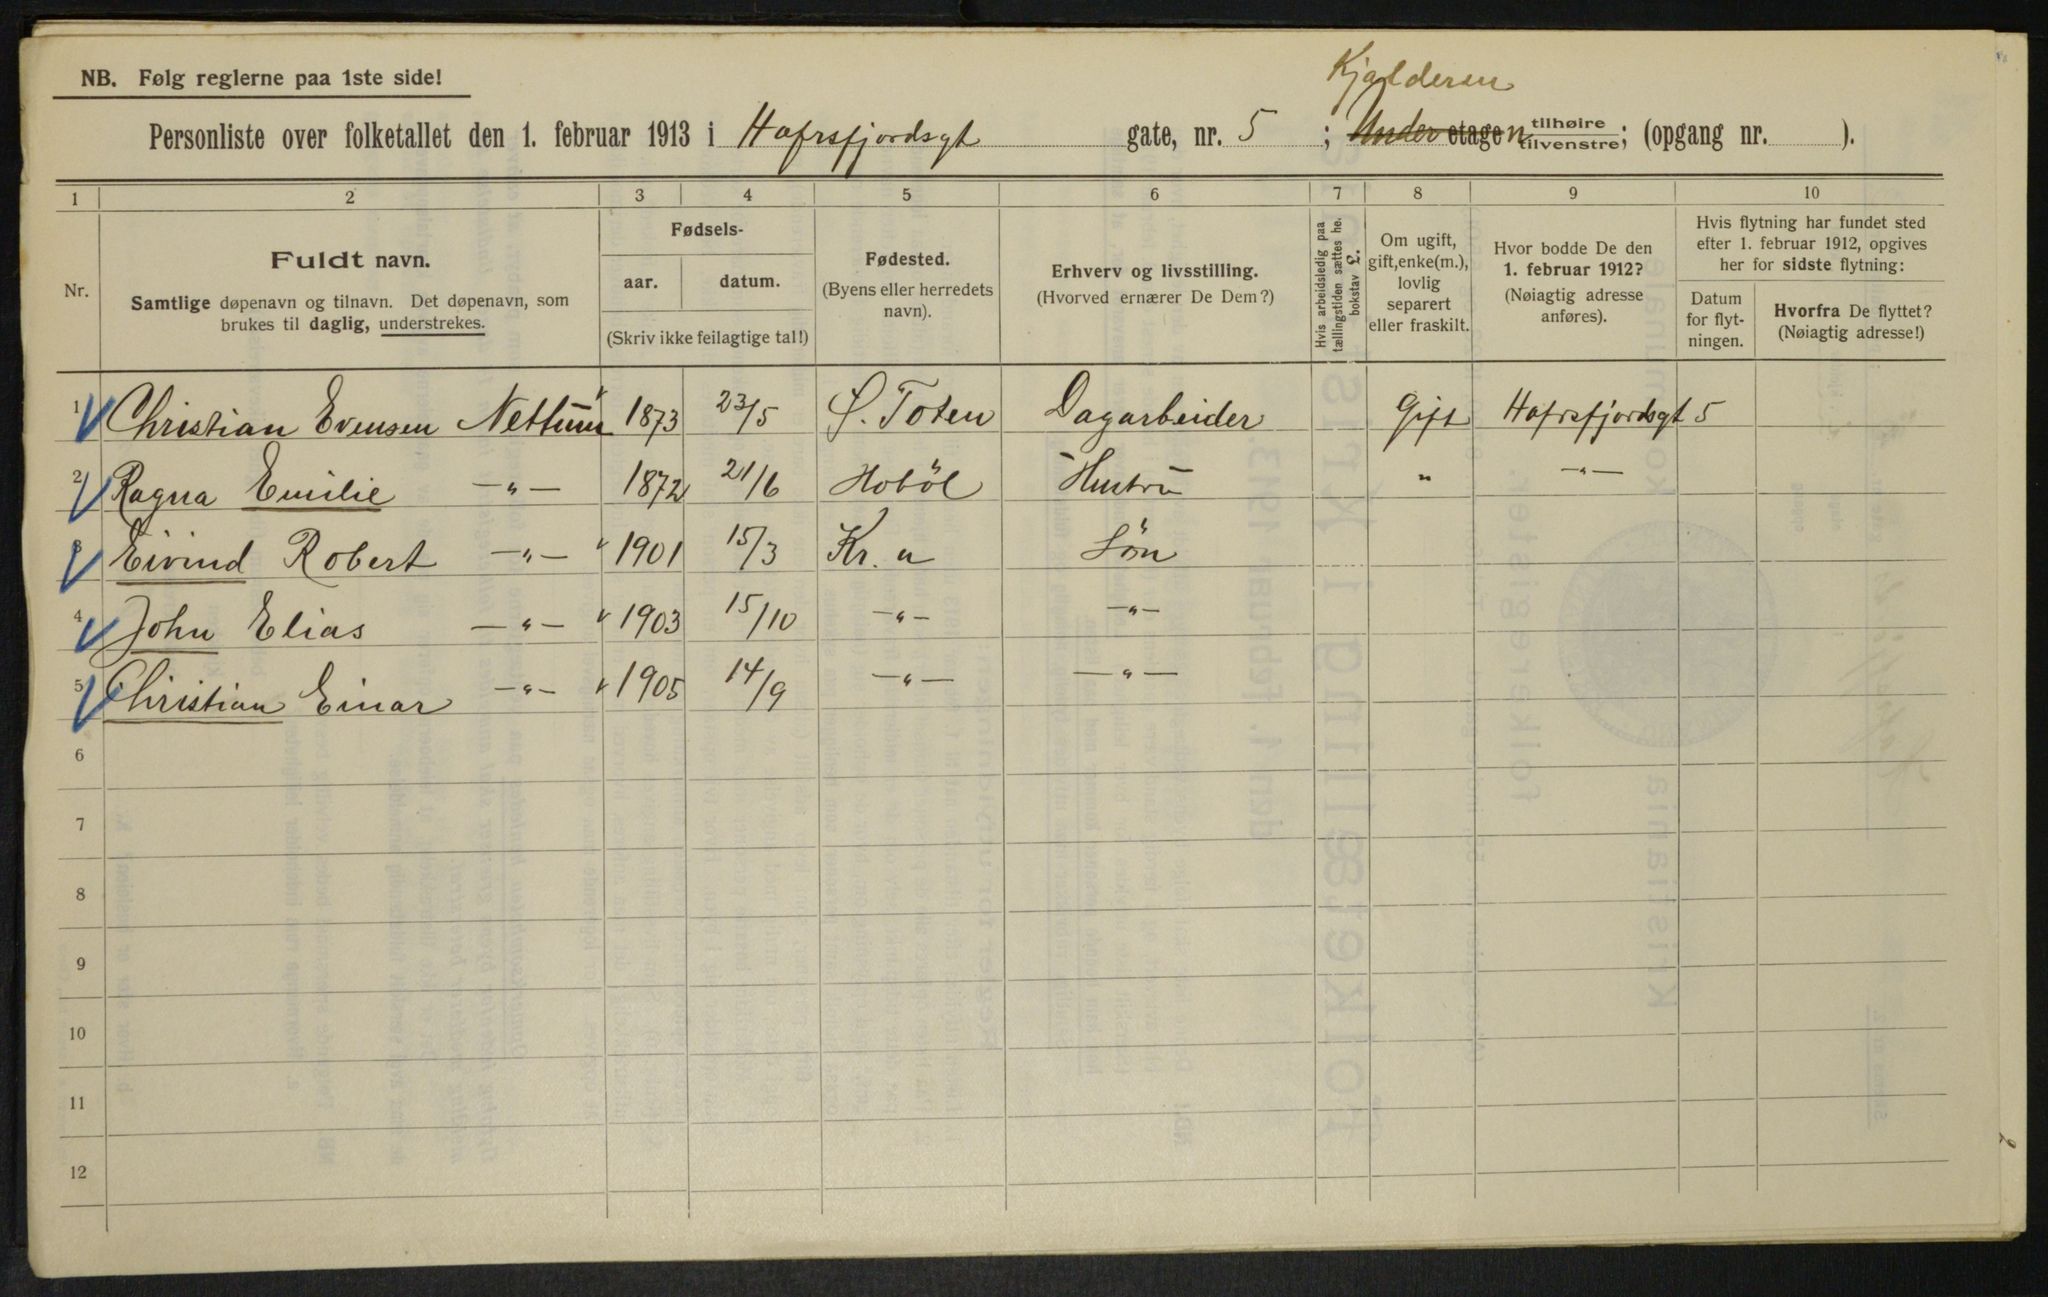 NB. Følg reglerne paa 1ste side!
Kjælderen
Personliste over folketallet den 1. februar 1913 i Hafrsfjordsgt gate, nr. 5 ; Under etagen tilhøire tilvenstre; (opgang nr. ).
1 2 3 4 5 6 7 8 9 10
Nr.
Fuldt navn.
Samtlige døpenavn og tilnavn. Det døpenavn, som
brukes til daglig, understrekes.
Fødsels-
aar. datum.
(Skriv ikke feilagtige tal!)
Fødested.
(Byens eller herredets
navn).
Erhverv og livsstilling.
(Hvorved ernærer De Dem?)
Hvis arbeidsledig paa
tællingstiden sættes her
bokstav L.
Om ugift,
gift, enke(m.),
lovlig
separert
eller fraskilt.
Hvor bodde De den
1. februar 1912?
(Nøiagtig adresse
anføres).
Hvis flytning har fundet sted
efter 1. februar 1912, opgives
her for sidste flytning:
Datum
for flyt-
ningen.
Hvorfra De flyttet?
(Nøiagtig adresse!)
1 Christian Evensen Nettum 1873 23/5 Ø. Toten Dagarbeider Gift Hafrsfjordsgt 5
2 Ragna Emilie —"— 1872 21/6 Hoböl Hustru " —"—
3 Eivind Robert —"— 1901 15/3 Kr.a Sön
4 John Elias —"— 1903 15/10 —"— —"—
5 Christian Einar —"— 1905 14/9 —"— —"—
6
7
8
9
10
11
12